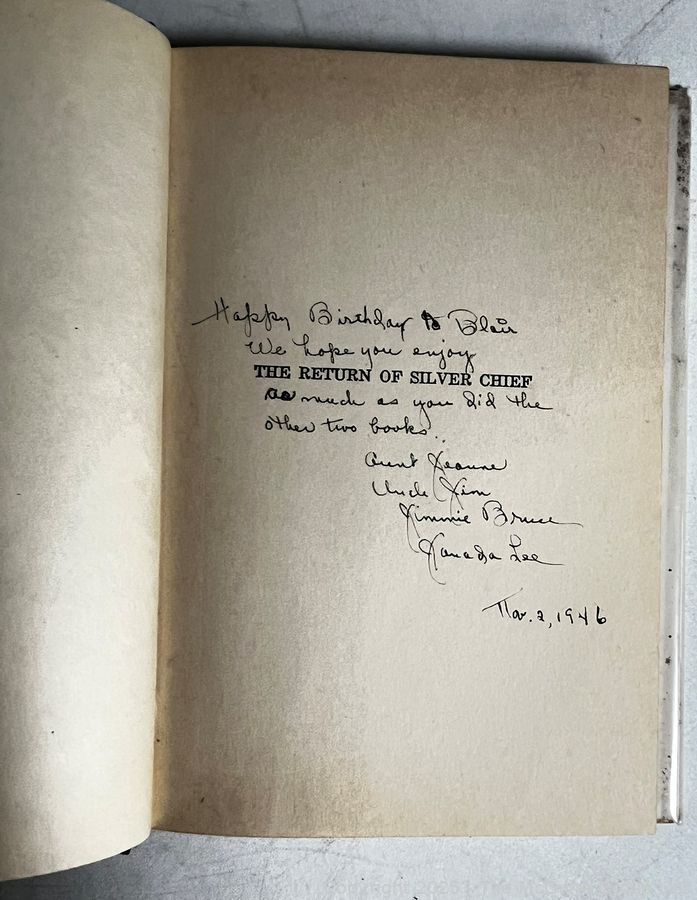 Happy Birthday to Blair
We hope you enjoy
THE RETURN OF SILVER CHIEF
as much as you did the
other two books.
Aunt Jeanne
Uncle Jim
Jimmie Bruce
Lee
Nov. 2, 1946